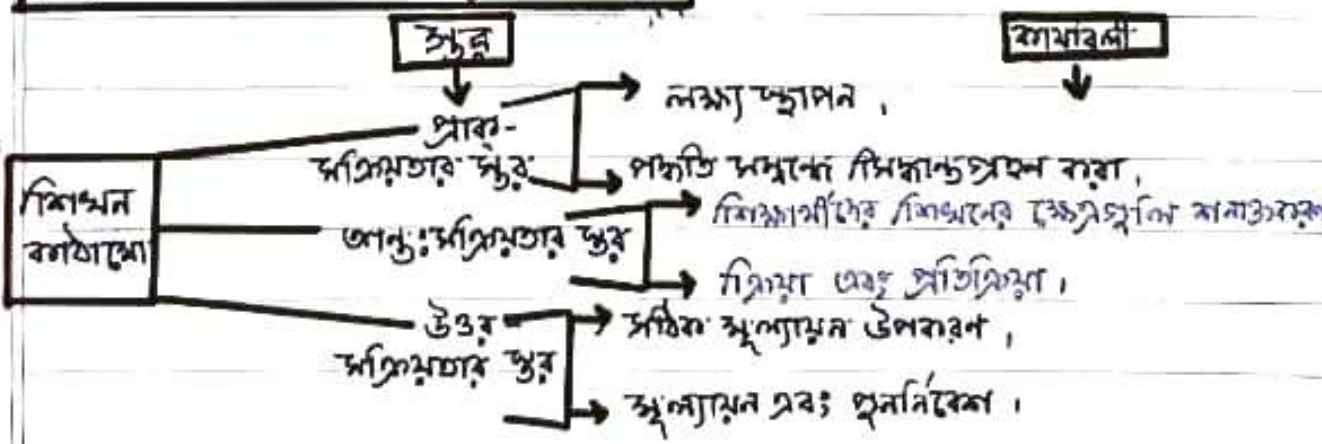 স্তর
কার্যাবলী
প্রাক-
সক্রিয়তার স্তর
লক্ষ্য স্থাপন।
পদ্ধতি সম্বন্ধে সিদ্ধান্তগ্রহন করা।
শিখন
কাঠামো
আন্তঃসক্রিয়তার স্তর
শিক্ষার্থীদের শিখনের ক্ষেত্রগুলি শনাক্তকরণ
ক্রিয়া এবং প্রতিক্রিয়া।
উত্তর
সক্রিয়তার স্তর
সঠিক মূল্যায়ন উপকরণ,
মূল্যায়ন এবং পুনর্নির্বেশ।